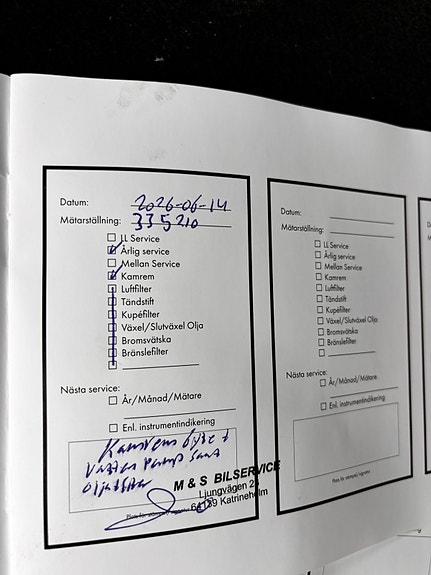 Datum: 2026-06-14
Mätarställning: 335210
LL Service
Årlig service
Mellan Service
Kamrem
Luftfilter
Tändstift
Kupéfilter
Växel/Slutväxel Olja
Bromsvätska
Bränslefilter
Nästa service:
År/Månad/Mätare
Enl. instrumentindikering
Kamrem bytet
Vatten pump samt
oljefilter
M & S BILSERVICE
Ljungvägen
64139 Katrineholm
Plats för stämpel/signatur
Datum:
Mätarställning:
LL Service
Årlig service
Mellan Service
Kamrem
Luftfilter
Tändstift
Kupéfilter
Växel/Slutväxel Olja
Bromsvätska
Bränslefilter
Nästa service:
År/Månad/Mätare
Enl. instrumentindikering
Plats för stämpel/signatur